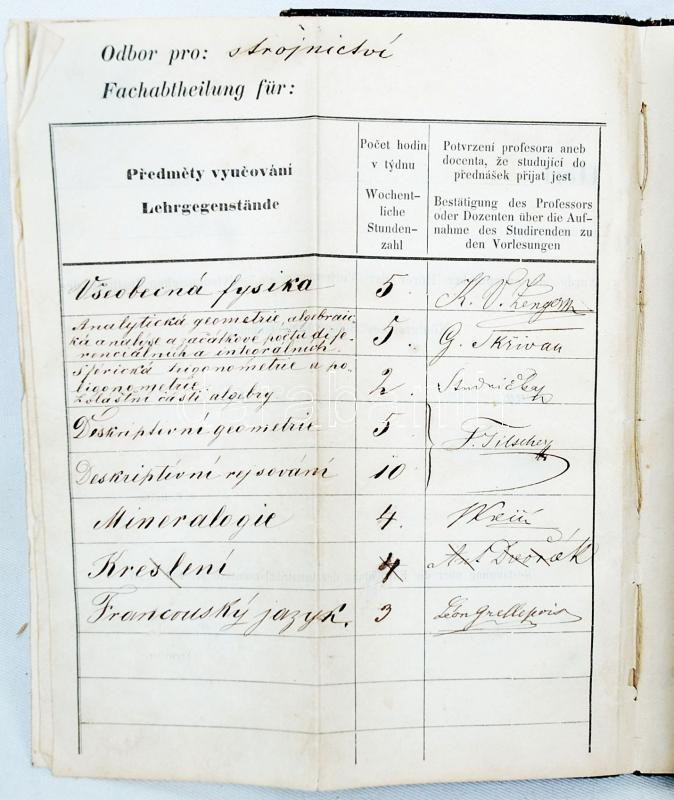 Odbor pro: strojnictví
Fachabtheilung für:
Předměty vyučování
Lehrgegenstände
Počet hodin
v týdnu
Wochent-
liche
Stunden-
zahl
Potvrzení profesora aneb
docenta, že studující do
přednášek přijat jest
Bestätigung des Professors
oder Dozenten über die Auf-
nahme des Studirenden zu
den Vorlesungen
Všeobecná fysika 5 K. V. Zenger
Analytická geometrie, algebraic-
ká analyse a začátkové počtu dife-
renciálních a integrálních. 5. G. Skřivan
Sférická trigonometrie a po-
ligonometrie
zvláštní části algebry 2. Studnička
Deskriptivní geometrie 5
F. Tilscher
Deskriptivní rysování 10
Mineralogie 4. Krejčí
Kreslení 4 Ant Dvořák
Francouský jazyk. 3 Léon